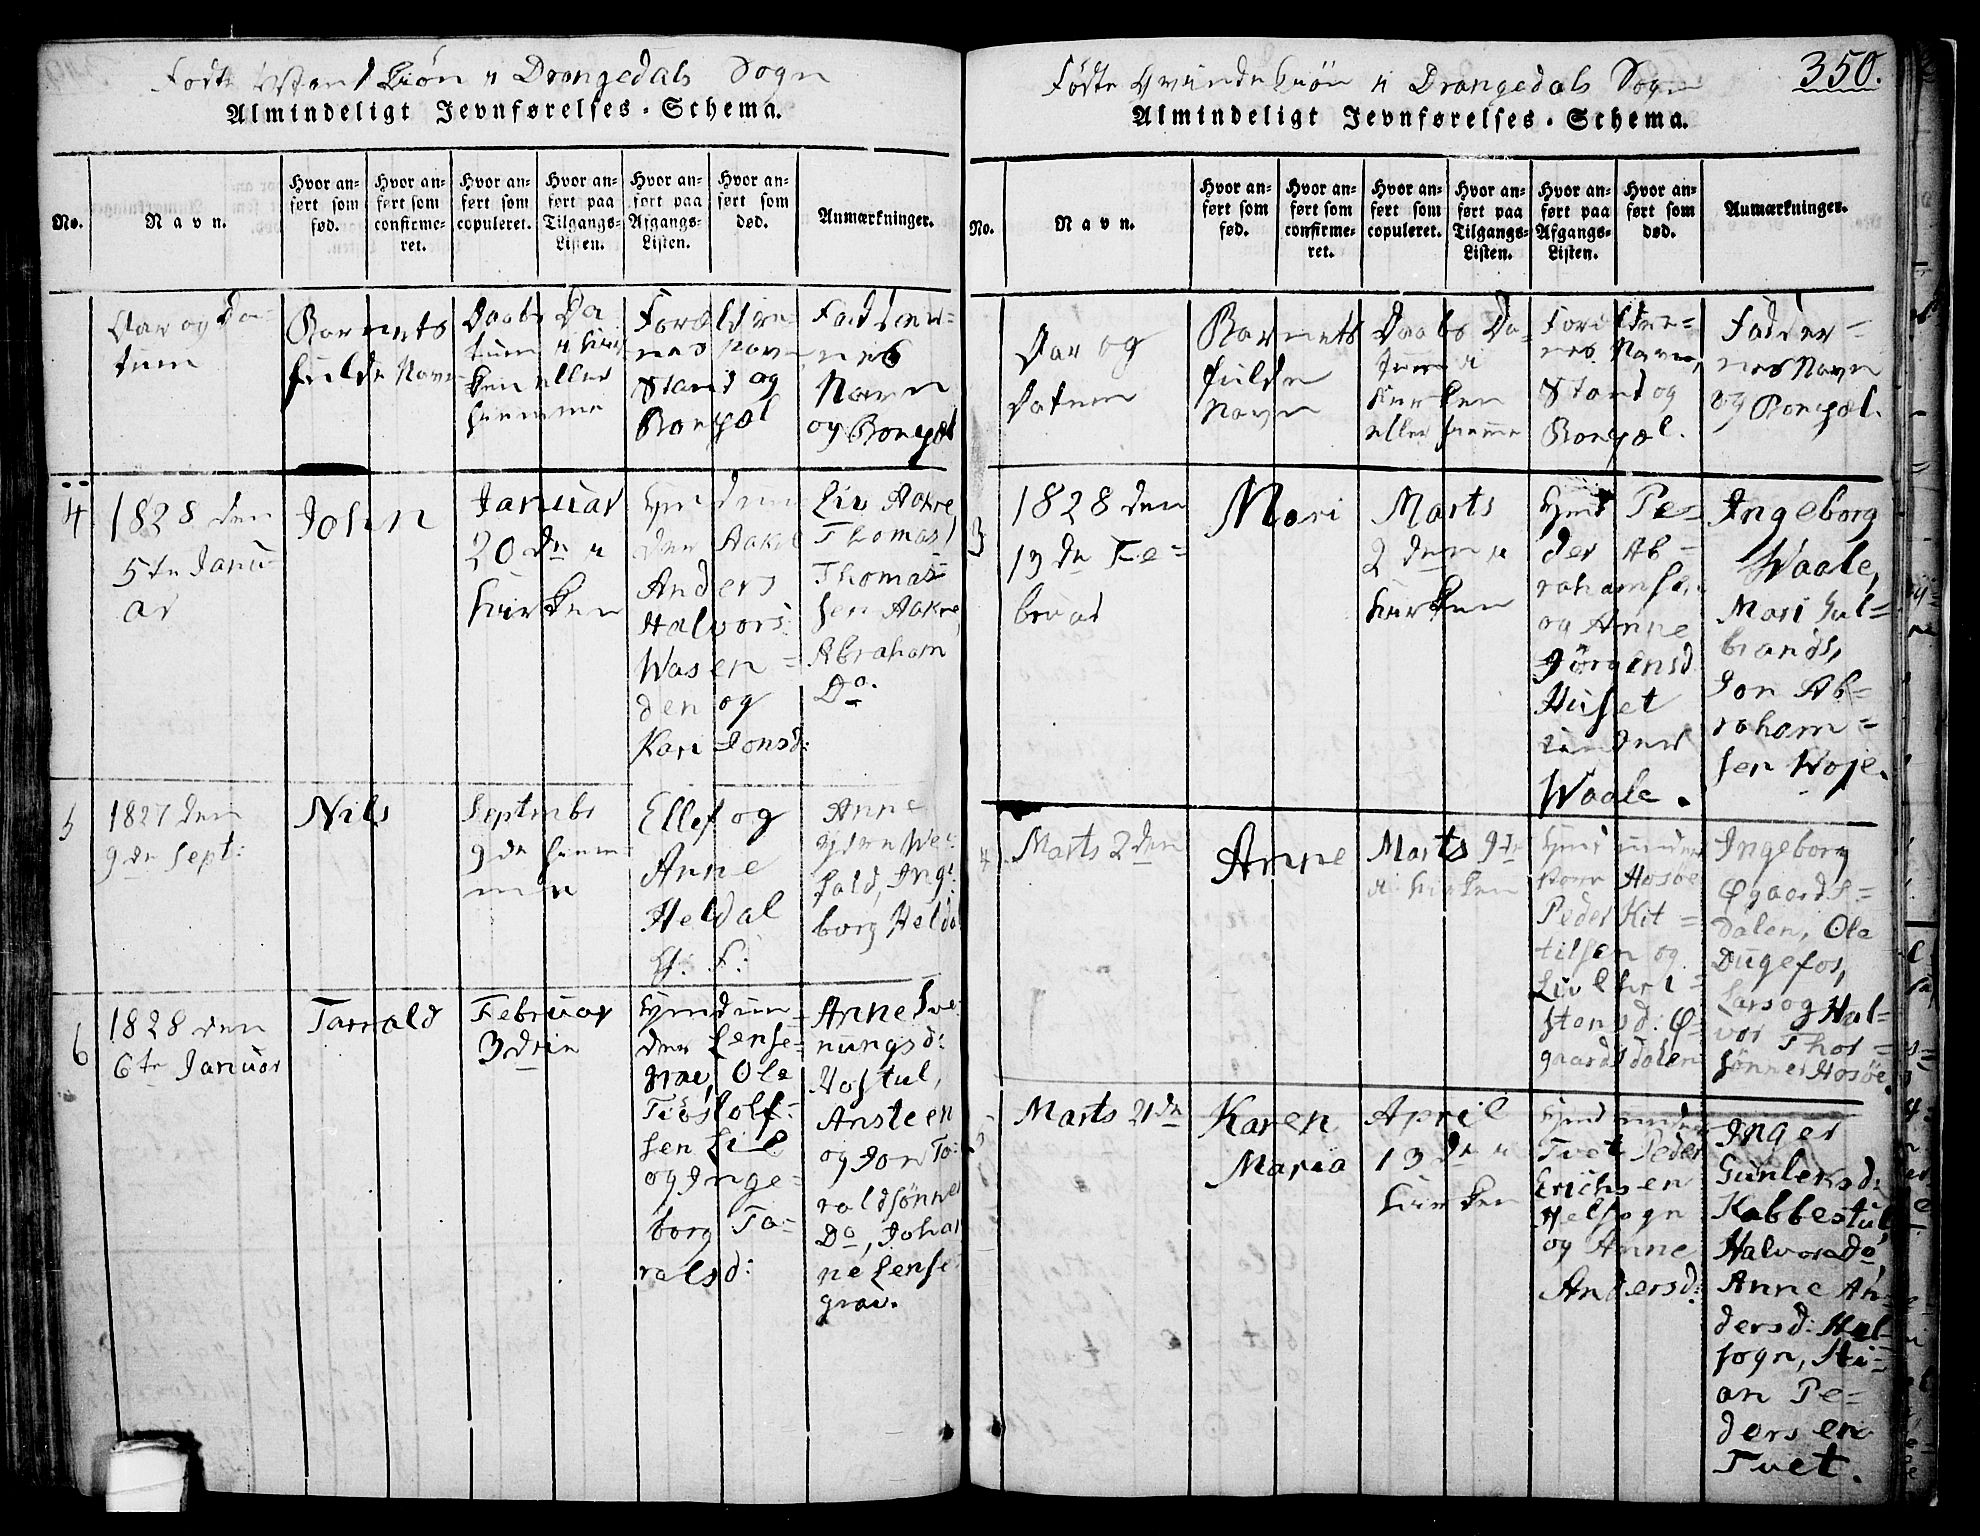 Fødte Mand Kiøn i Drangedals Sogn
Almindeligt Jevnførelses-Schema.
No.
Navn.
Hvor an-
ført som
fød.
Hvor an-
ført som
confirme-
ret.
Hvor an-
ført som
copuleret.
Hvor an-
ført paa
Tilgangs-
Listen.
Hvor an-
ført paa
Afgangs-
Listen.
Hvor an-
ført som
død.
Anmærkninger.
Aar og Da-
tum
Barnets
fulde Navn
Daabs Da
tum i Kir
ken eller
hiemme
Forældre-
nes Navn,
Stand og
Bopæl
Faddier-
nes
Navn
og Bopæl
4
1828 den
5te Janu-
ar
John
Januar
20de i
Kirken
Anders
Halvors:
Wasen-
den og
Kari Jonsd:
Liv Aakre
Thomas
Thomas-
sen Aakre
Abraham
Do.
5
1827 den
9de Sept:
Nils
Septmbr
9de hiem-
men
Ellef og
Anne
Heldal
Anne
Wef-
fald, Inge-
borg Heldal
6
1828 den
6te Januar
Tarrald
Februar
3die
der Lense-
grav, Ole
Tiøstolf-
sen Lie
og Inge-
borg To-
ralsd:
Anne Sve-
nungsd:
Hostul,
Ansteen
og Jon To-
raldsønner
Do, Johan
ne Lense-
grav.
350.
Fødte Qvinde Kiøn i Drangedals Sogn
Almindeligt Jevnførelses-Schema.
No.
Navn.
Hvor an-
ført som
fød.
Hvor an-
ført som
confirme-
ret.
Hvor an-
ført som
copuleret.
Hvor an-
ført paa
Tilgangs-
Listen.
Hvor an-
ført paa
Afgangs-
Listen.
Hvor an-
ført som
død.
Anmærkninger.
Aar og
Datum
Barnets
fulde
Navn
Daabs Da-
tum i
Kirken
eller hiemme
Forældre-
nes Navn,
Stand og
Bopæl.
Fadder-
nes Navn
og Bopæl.
3
1828 den
13de Fe-
bruar
Mari
Marts
2den i
Kirken
Hmd Pe-
der Ab-
rahamsen
og Anne
Jørgensd
Huset
under
Waale.
Ingeborg
Waale,
Mari Gul-
brands,
Jon Ab-
raham-
sen Woje.
4
Marts 2den
Anne
Marts 9de
i Kirken
Hmd under
Hosøe
Peder Kit-
tilsen og
Liv Chri-
stensd: Ø-
gaardsdalen
Ingeborg
Øgaards-
dalen, Ole
Dugefos,
Lars og Hal-
vor Thor-
sønner Hosøe.
5
Marts 21de
Karen
Maria
April
13de i
Kirken
Hmd under
Tvet Peder
Erichsen
Helsogn
og Anne
Andersd:
Inger
Gunleksd:
Kabbestul,
Halvor Do,
Anne An-
dersd: Hel-
sogn, Sti-
an Pe-
dersen
Tvet.